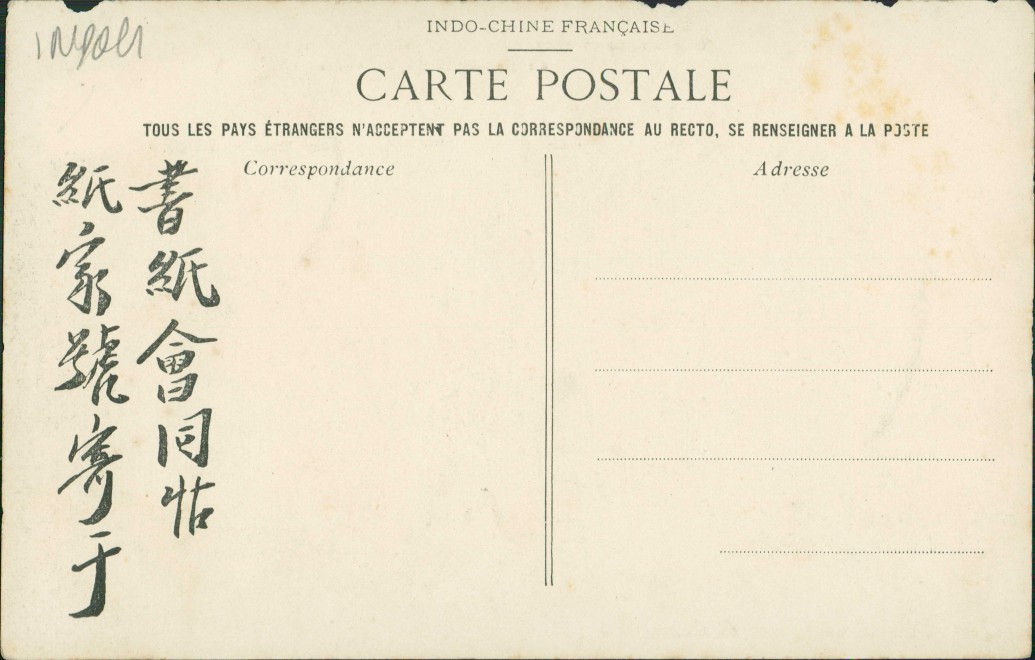 INDO-CHINE FRANÇAISE
CARTE POSTALE
TOUS LES PAYS ÉTRANGERS N'ACCEPTENT PAS LA CORRESPONDANCE AU RECTO, SE RENSEIGNER A LA POSTE
Correspondance
Adresse
書紙會同帖
紙家號寄于